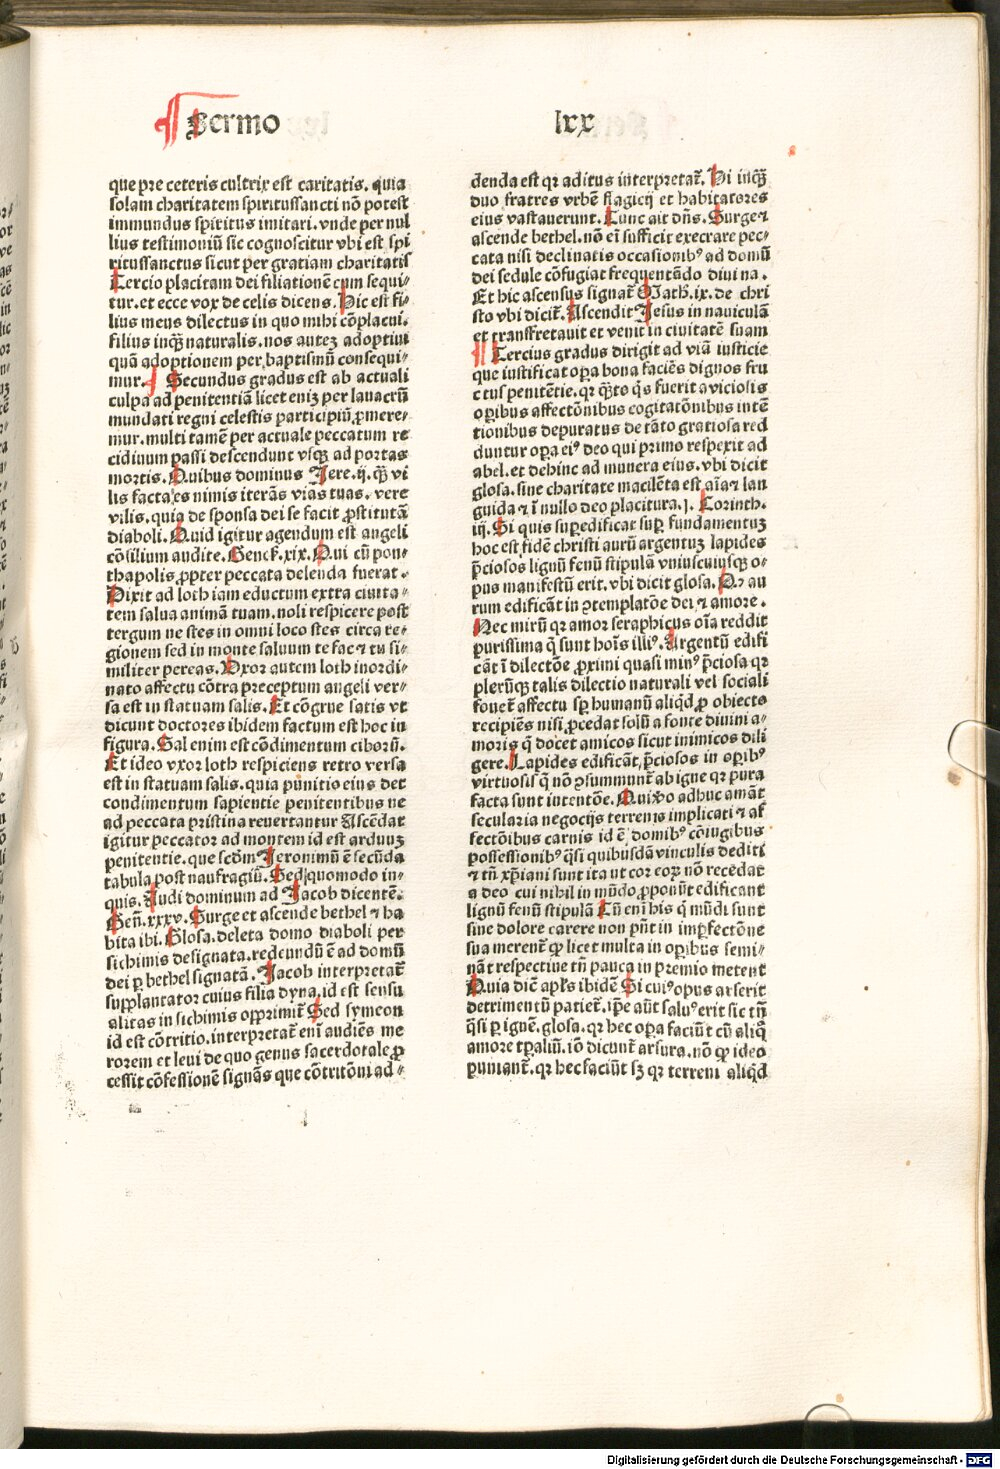 Sermo lxx
que pre ceteris cultrix est caritatis. quia
solam charitatem spiritussancti nō potest
immundus spiritus imitari. vnde per nul
lius testimoniū sic cognoscitur vbi est spi
ritussanctus sicut per gratiam charitatis
Tercio placitam dei filiationē cum sequi⸗
tur. et ecce vox de celis dicens. Hic est fi⸗
lius meus dilectus in quo mihi cōplacui.
filius inqꝫ naturalis. nos autez adoptiui
quā adoptionem per baptismū consequi⸗
mur. Secundus gradus est ab actuali
culpa ad penitentiā licet eniz per lauacrū
mundati regni celestis participiū ꝓmere⸗
mur. multi tamē per actuale peccatum re
cidiuum passi descendunt vsqꝫ ad portas
mortis. Quibus dominus Jere. ij. qꝫ vi
lis facta es nimis iterās vias tuas. vere
vilis. quia de sponsa dei se facit ꝓstitutā
diaboli. Quid igitur agendum est angeli
cōsilium audite. Genes. xix. Qui cū pen⸗
thapolis ꝓpter peccata delenda fuerat.
Dixit ad loth iam eductum extra ciuita⸗
tem salua animā tuam. noli respicere post
tergum ne stes in omni loco stes circa re⸗
gionem sed in monte saluum te fac ⁊ tu si⸗
militer pereas. Vxor autem loth inordi⸗
nato affectu cōtra preceptum angeli ver⸗
sa est in statuam salis. Et cōgrue satis vt
dicunt doctores ibidem factum est hoc in
figura. Sal enim est cōdimentum ciborū.
Et ideo vxor loth respiciens retro versa
est in statuam salis. quia punitio eius det
condimentum sapientie penitentibus ne
ad peccata pristina reuertantur Ascēdat
igitur peccator ad montem id est arduuz
penitentie. que scd̄m Jeronimū ē secūda
tabula post naufragiū. Sed quomodo in⸗
quis. Audi dominum ad Jacob dicentē.
Gen̄. xxxv. Surge et ascende bethel ⁊ ha
bita ibi. Glosa. deleta domo diaboli per
sichimis designata. redeundū ē ad domū
dei ꝑ bethel signatā. Jacob interpretat̄
supplantator cuius filia dyna. id est sensu
alitas in sichimis opprimit̄ Sed symeon
id est cōtritio. interpretat̄ eni audiēs me
rorem et leui de quo genus sacerdotale ꝓ
cessit cōfessionē signās que cōtritōni ad⸗
denda est qꝛ aditus interpretat̄. Hi inqꝫ
duo fratres vrbē flagicij et habitatores
eius vastauerunt. Tunc ait dn̄s. Surge ⁊
ascende bethel. nō ei sufficit execrare pec⸗
cata nisi declinatis occasionibꝰ ad domū
dei sedule cōfugiat frequentādo diuina.
Et hic ascensus signat̄ Math. ix. de chri
sto vbi dicit̄. Ascendit Jesus in nauiculā
et transfretauit et venit in ciuitatē suam
Tercius gradus dirigit ad viā iusticie
que iustificat opa bona faciēs dignos fru
ctus penitētie. qꝛ qn̄to q̄s fuerit a viciosis
opibus affectōnibus cogitatōnibus intē
tionibus depuratus de tāto gratiosa red
duntur opa eiꝰ deo qui primo respexit ad
abel. et dehinc ad munera eius. vbi dicit
glosa. sine charitate macilēta est aīa ⁊ lan
guida ⁊ ī nullo deo placitura. j. Corinth.
iij. Si quis supedificat sup fundamentuz
hoc est fidē christi aurū argentuz lapides
p̄ciosos lignū fenū stipulā vniuscuiusqꝫ o⸗
pus manifestū erit. vbi dicit glosa. Qꝛ au
rum edificāt in ꝯtemplatōe dei ⁊ amore.
Nec mirū qꝛ amor seraphicus oīa reddit
purissima q̄ sunt hoīs illiꝰ. Argentū edifi
cāt ī dilectōe ꝓximi quasi minꝰ p̄ciosa qꝛ
plerūqꝫ talis dilectio naturali vel sociali
fouet̄ affectu sꝫ humanū aliqd ꝓ obiecto
recipiēs nisi ꝓcedat solū a fonte diuini a⸗
moris q̄ docet amicos sicut inimicos dili
gere. Lapides edificāt p̄ciosos in opibꝰ
virtuosis q̄ nō ꝯsummunt̄ ab igne qꝛ pura
facta sunt intentōe. Qui vo adhuc amāt
secularia negocijs terrenis implicati ⁊ af
fectōibus carnis id ē domibꝰ cōiugibus
possessionibꝰ q̄si quibusdā vinculis dediti
⁊ tn̄ xp̄iani sunt ita ut cor eoꝝ nō recedat
a deo cui nihil in mūdo ꝓponūt edificant
lignū fenū stipulā Cū eni his q̄ mūdi sunt
sine dolore carere non pn̄t in imꝑfectōne
sua merent̄ ꝙ licet multa in opibus semi⸗
nāt respectiue tn̄ pauca in premio metent
Quia dic̄ apl̄s ibidē Si cuiꝰ opus arserit
detrimentū patiet̄. ip̄e aūt saluꝰ erit sic tn̄
q̄si ꝑ ignē. glosa. qꝛ hec opa faciūt cū aliq̄
amore tꝑaliū. iō dicunt̄ arsura. nō ꝙ ideo
puniant̄. qꝛ hec faciūt sꝫ qꝛ terreni aliqd
Digitalisierung gefördert durch die Deutsche Forschungsgemeinschaft - DFG